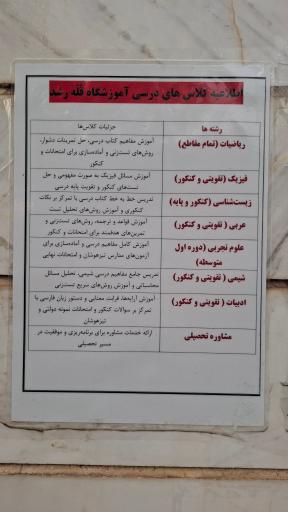 اطلاعیه کلاس های درسی آموزشگاه قله رشد
رشته ها
جزئیات کلاس‌ها
ریاضیات (تمام مقاطع)
آموزش مفاهیم کتاب درسی، حل تمرینات دشوار،
روش‌های تست‌زنی و آماده‌سازی برای امتحانات و
کنکور
فیزیک (تقویتی و کنکور)
آموزش مسائل فیزیک به صورت مفهومی و حل
تست‌های کنکور و تقویت پایه درسی
زیست‌شناسی (کنکور و پایه)
تدریس خط به خط کتاب درسی با تمرکز بر نکات
کنکوری و آموزش روش‌های تحلیل تست
عربی (تقویتی و کنکور)
آموزش قواعد و ترجمه، روش‌های تست‌زنی و
تمرین‌های هدفمند برای امتحانات و کنکور
علوم تجربی (دوره اول
متوسطه)
آموزش کامل مفاهیم درسی و آماده‌سازی برای
آزمون‌های مدارس تیزهوشان و امتحانات نهایی
شیمی (تقویتی و کنکور)
تدریس جامع مفاهیم درسی شیمی، تحلیل مسائل
محاسباتی و آموزش روش‌های سریع تست‌زنی
ادبیات (تقویتی و کنکور)
آموزش آرایه‌ها، قرابت معنایی و دستور زبان فارسی با
تمرکز بر سوالات کنکور و امتحانات نمونه دولتی و
تیزهوشان
مشاوره تحصیلی
ارائه خدمات مشاوره برای برنامه‌ریزی و موفقیت در
مسیر تحصیلی